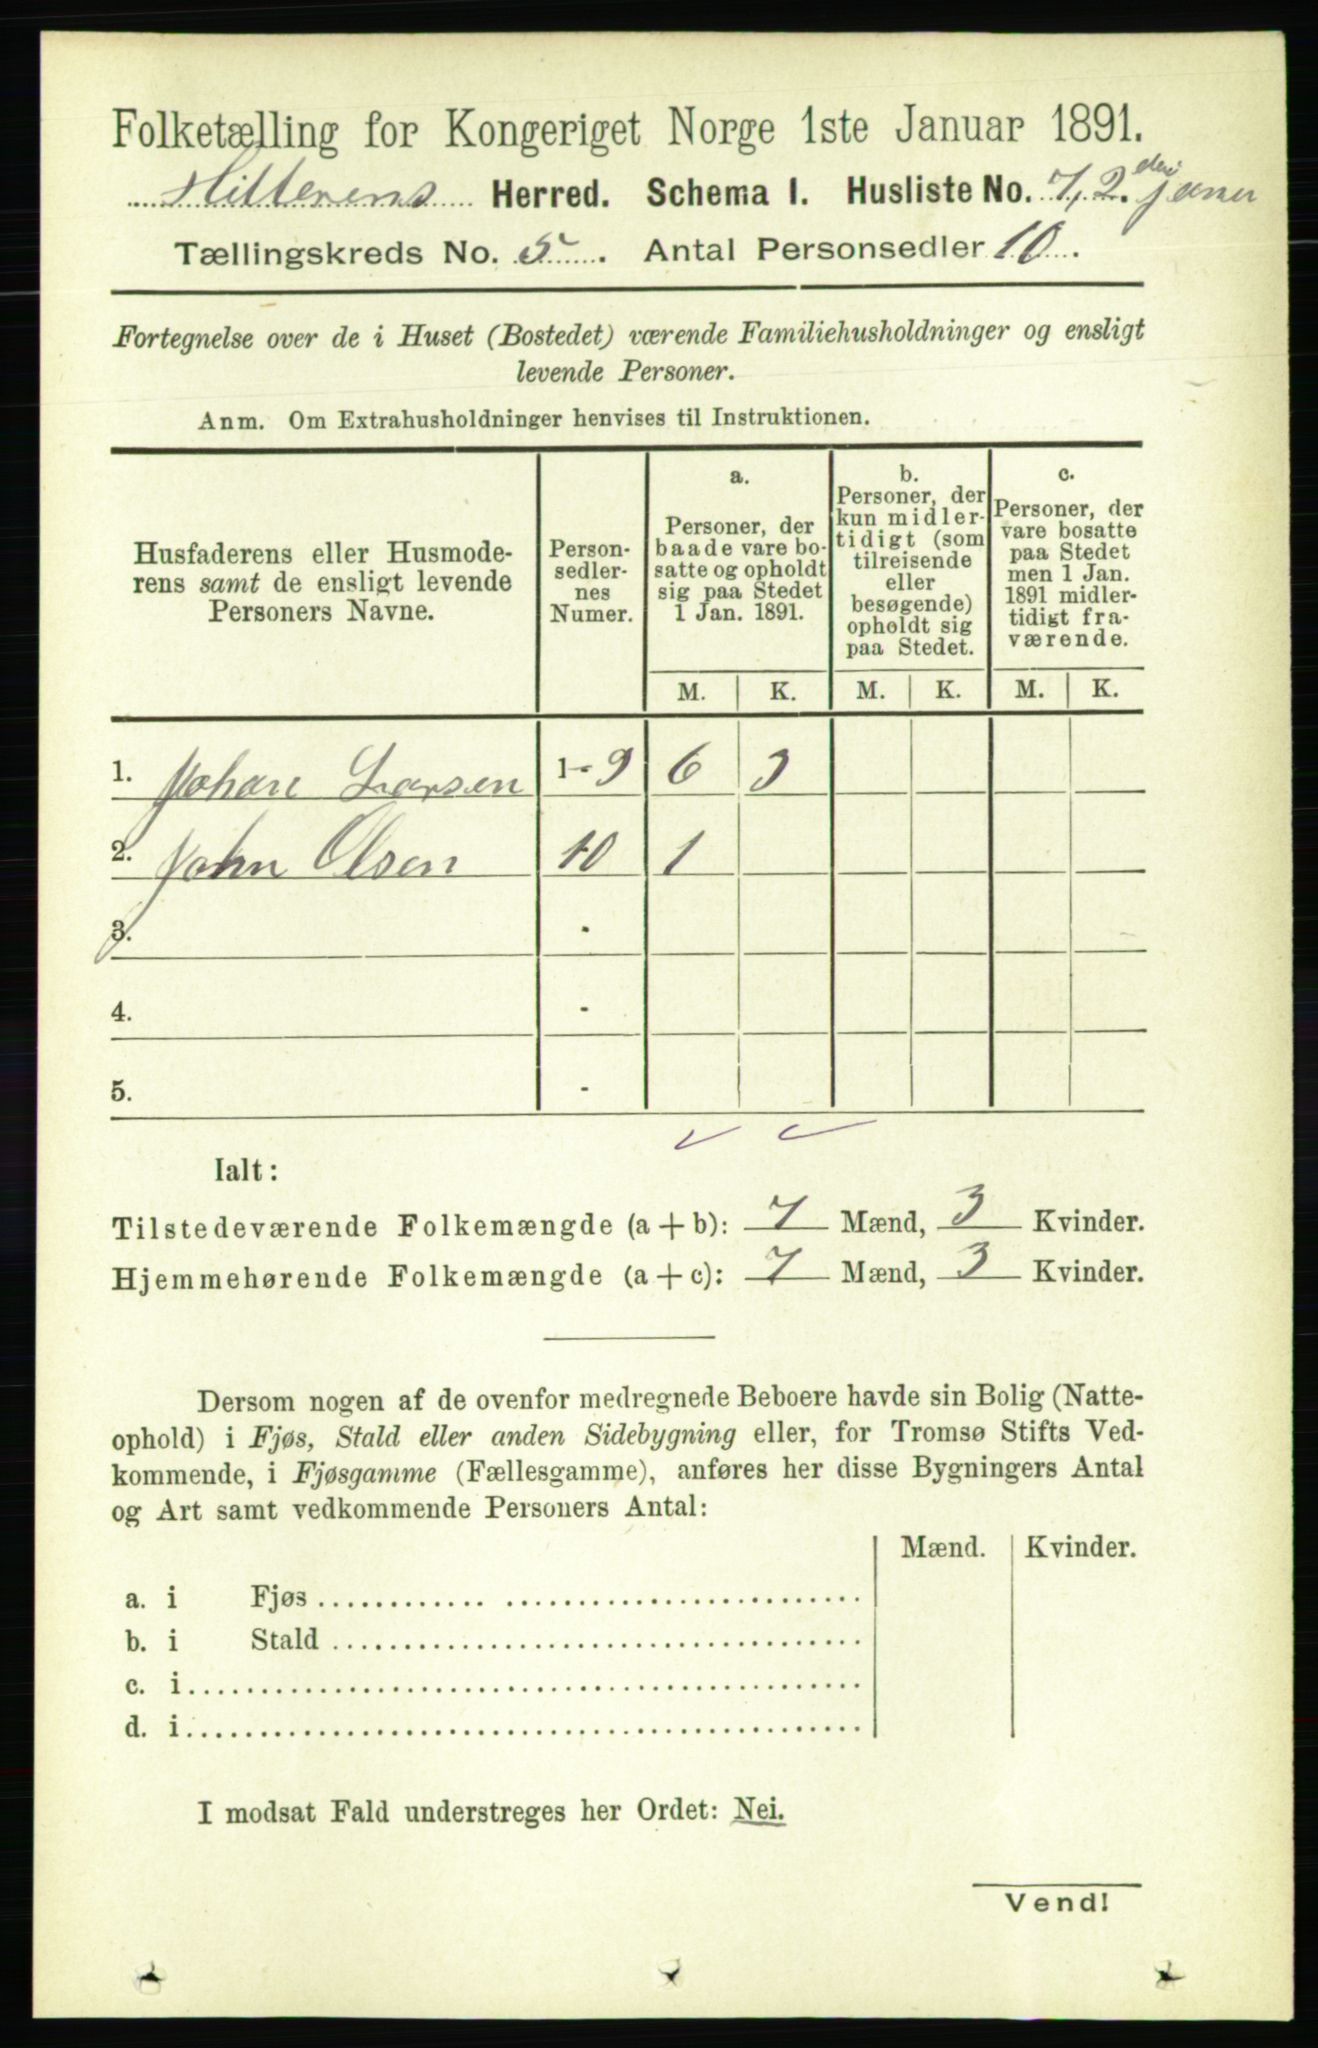 Folketælling for Kongeriget Norge 1ste Januar 1891.
Hitterens Herred. Schema 1. Husliste No. 7, 2den
Tællingskreds No. 5. Antal Personsedler 10.
Fortegnelse over de i Huset (Bostedet) værende Familiehusholdninger og ensligt
levende Personer.
Anm. Om Extrahusholdninger henvises til Instruktionen.
Husfaderens eller Husmode-
rens samt de ensligt levende
Personers Navne.
Person-
sedler-
nes
Numer.
a.
Personer, der
baade vare bo-
satte og opholdt
sig paa Stedet
1 Jan. 1891.
b.
Personer, der
kun midler-
tidigt (som
tilreisende
eller
besøgende)
opholdt sig
paa Stedet.
c.
Personer, der
vare bosatte
paa Stedet
men 1 Jan.
1891 midler-
tidigt fra-
værende.
M. K. M. K. M. K.
1. Johan Larsen 1-9 6 3
2. John Olsen 10 1
3. -
4. -
5. -
Ialt:
Tilstedeværende Folkemængde (a+b): 7 Mænd, 3 Kvinder.
Hjemmehørende Folkemængde (a+c): 7 Mænd, 3 Kvinder.
Dersom nogen af de ovenfor medregnede Beboere havde sin Bolig (Natte-
ophold) i Fjøs, Stald eller anden Sidebygning eller, for Tromsø Stifts Ved-
kommende, i Fjøsgamme (Fællesgamme), anføres her disse Bygningers Antal
og Art samt vedkommende Personers Antal:
Mænd. Kvinder.
a. i Fjøs
b. i Stald
c. i
d. i
I modsat Fald understreges her Ordet: Nei.
Vend!